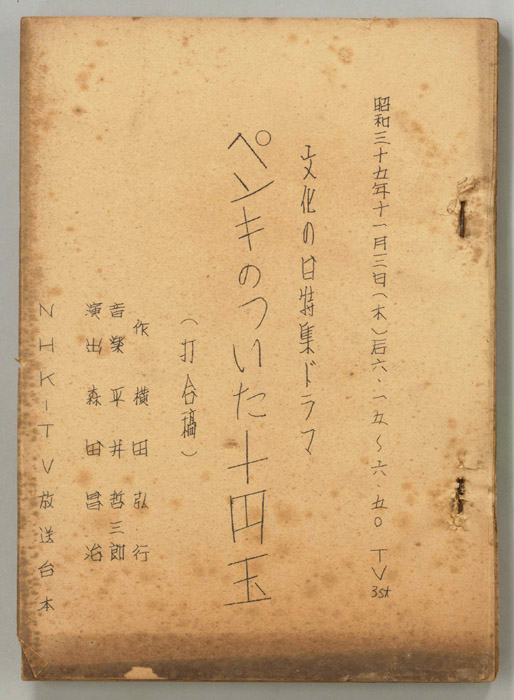 昭和三十五年十一月三日(木)后六・一五〜六・五〇 TV 3st
文化の日特集ドラマ
ペンキのついた十円玉
(打合稿)
作 横田弘行
音楽 平井哲三郎
演出 森田昌治
NHK-TV放送台本